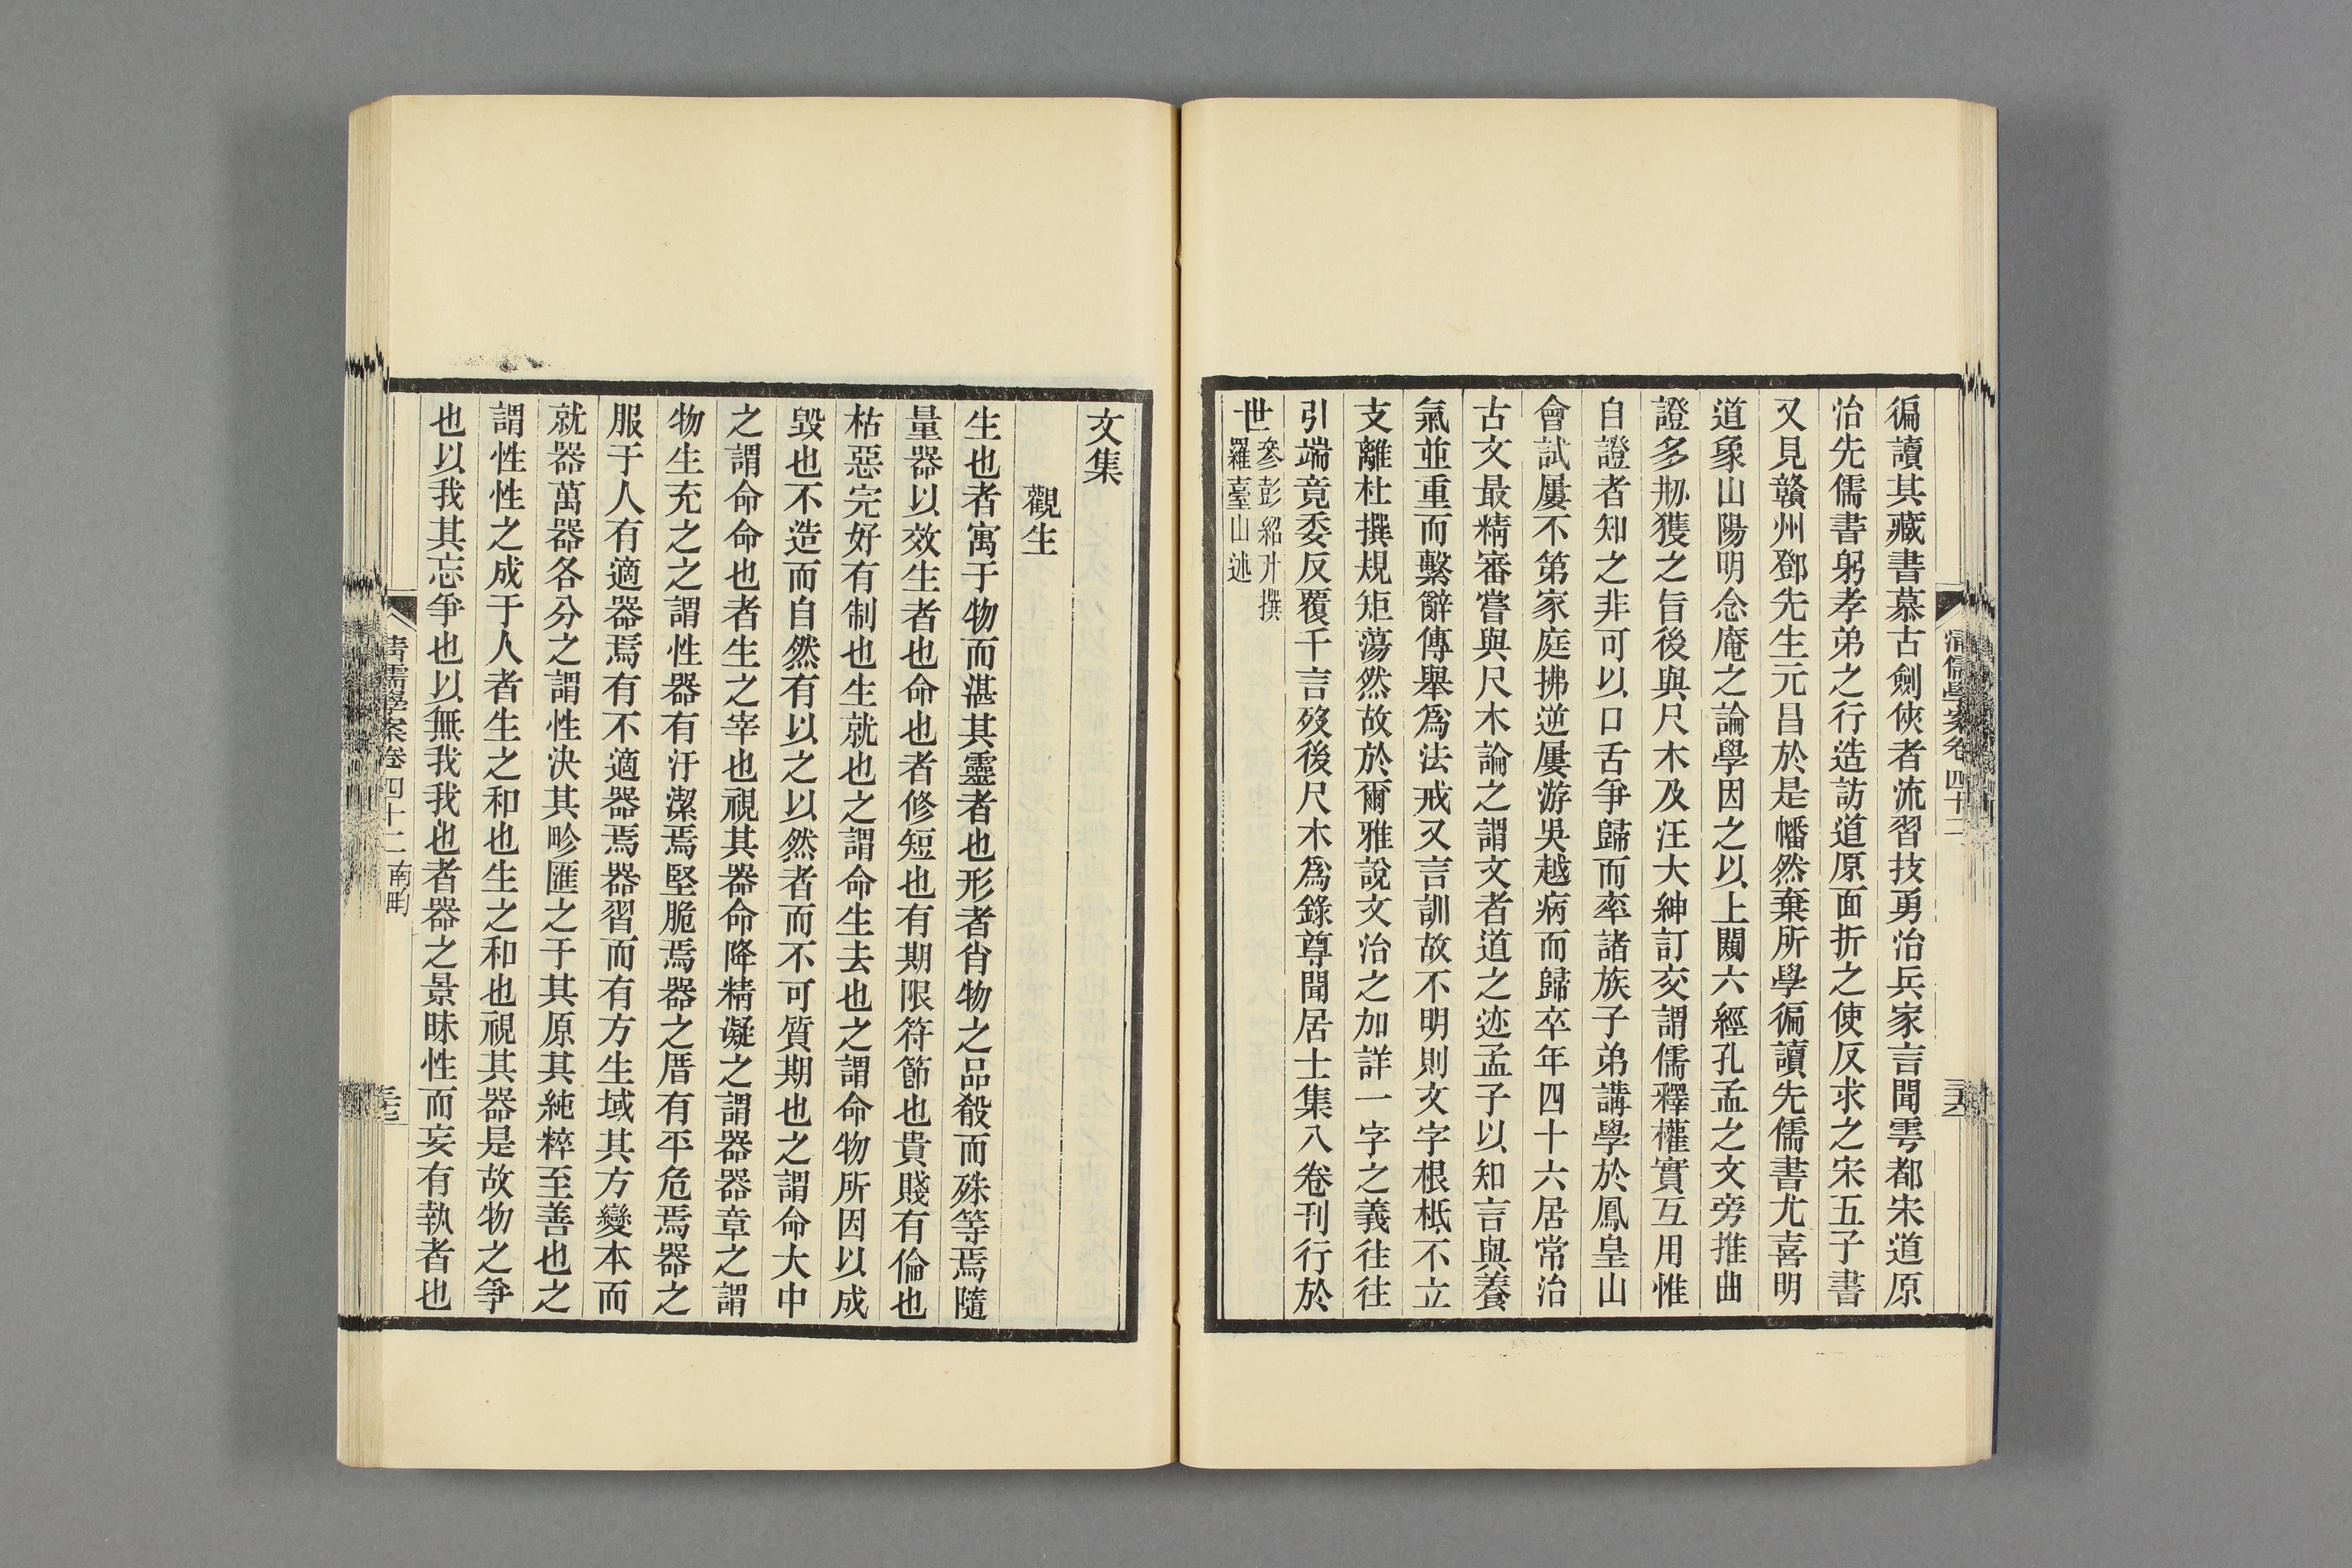 徧讀其藏書慕古劍俠者流習技勇治兵家言聞雩都宋道原
治先儒書躬孝弟之行造訪道原面折之使反求之宋五子書
又見贛州鄧先生元昌於是幡然棄所學徧讀先儒書尤喜明
道象山陽明念庵之論學因之以上闚六經孔孟之文旁推曲
證多刱獲之旨後與尺木及汪大紳訂交謂儒釋權實互用惟
自證者知之非可以口舌爭歸而率諸族子弟講學於鳳皇山
會試屢不第家庭拂逆屢游吳越病而歸卒年四十六居常治
古文最精審嘗與尺木論之謂文者道之迹孟子以知言與養
氣並重而繫辭傳舉爲法戒又言訓故不明則文字根柢不立
支離杜撰規矩蕩然故於爾雅說文治之加詳一字之義往往
引端竟委反覆千言歿後尺木爲錄尊聞居士集八卷刊行於
世參彭紹升撰
羅臺山述
清儒學案卷四十二
三六
文集
觀生
生也者寓于物而湛其靈者也形者肖物之品殽而殊等焉隨
量器以效生者也命也者修短也有期限符節也貴賤有倫也
枯惡完好有制也生就也之謂命生去也之謂命物所因以成
毀也不造而自然有以之以然者而不可質期也之謂命大中
之謂命命也者生之宰也視其器命降精凝之謂器器章之謂
物生充之之謂性器有汙潔焉堅脆焉器之厝有平危焉器之
服于人有適器焉有不適器焉器習而有方生域其方變本而
就器萬器各分之謂性決其畛匯之于其原其純粹至善也之
謂性性之成于人者生之和也生之和也視其器是故物之爭
也以我其忘爭也以無我我也者器之景昧性而妄有執者也
清儒學案卷四十二 南畇
三七